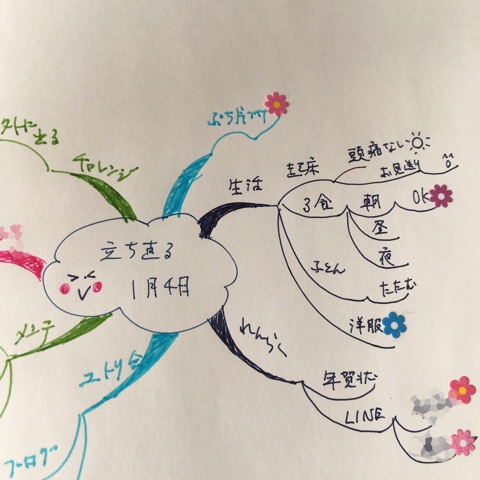 立ち直る
1月4日
チャレンジ
ぷち片づけ
生活
起床
頭痛ない
お見送り
3食
朝
OK
昼
夜
ふとん
たたむ
洋服
れんらく
年賀状
LINE
ブログ
メンテ